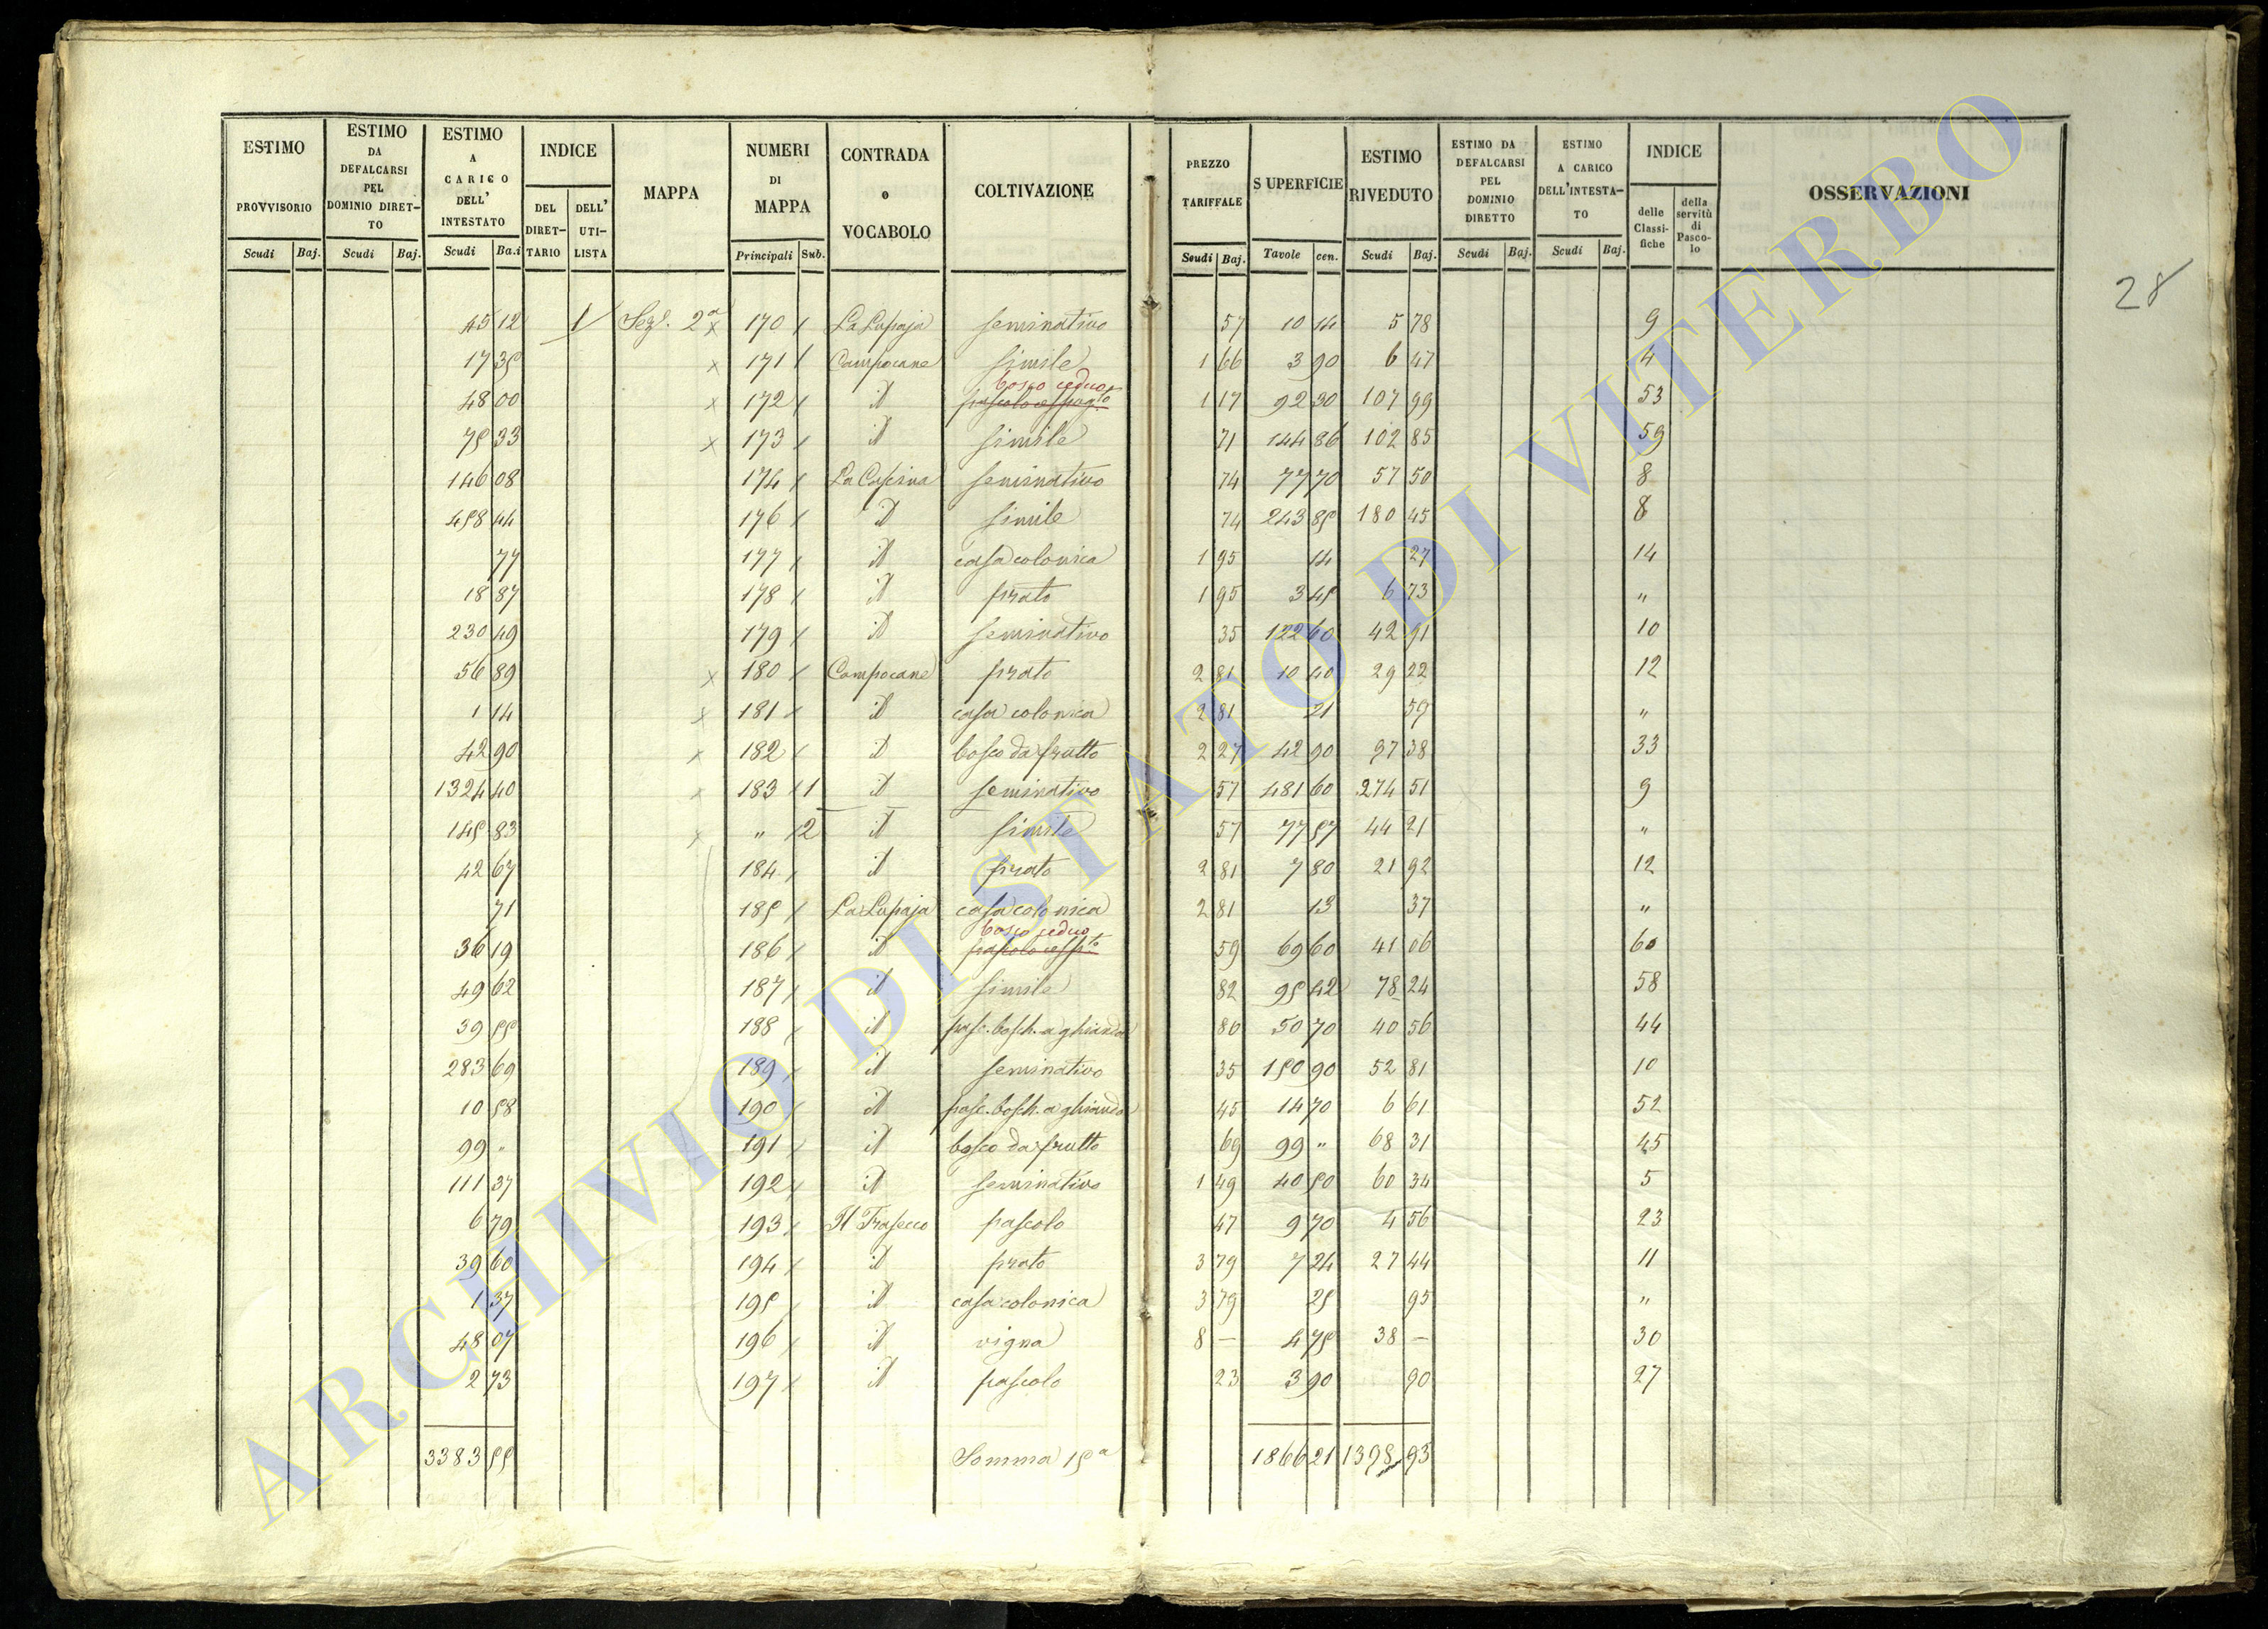 ESTIMO PROVVISORIO Scudi Baj. ESTIMO DA DEFALCARSI PEL DOMINIO DIRETTO Scudi Baj. ESTIMO A CARICO DELL' INTESTATO Scudi Ba.i INDICE DEL DIRETTARIO DELL' UTILISTA MAPPA NUMERI DI MAPPA Principali Sub. CONTRADA o VOCABOLO COLTIVAZIONE PREZZO TARIFFALE Scudi Baj. SUPERFICIE Tavole cen. ESTIMO RIVEDUTO Scudi Baj. ESTIMO DA DEFALCARSI PEL DOMINIO DIRETTO Scudi Baj. ESTIMO A CARICO DELL'INTESTATO Scudi Baj. INDICE delle Classifiche della servitù di Pascolo OSSERVAZIONI
28
45 12 1 Sez.e 2a x 170 / La Lupaja seminativo 57 10 14 5 78 9
17 35 x 171 / Campocane simile 1 66 3 90 6 47 4
bosco ceduo
48 00 x 172 / id pascolo cespugto 1 17 92 30 107 99 53
75 33 x 173 / id simile 71 144 86 102 85 59
146 08 174 / La Cascina seminativo 74 77 70 57 50 8
458 44 176 / id simile 74 243 85 180 45 8
77 177 / id casa colonica 1 95 14 27 14
18 87 178 / id prato 1 95 3 45 6 73 "
230 49 179 / id seminativo 35 122 60 42 91 10
56 89 x 180 / Campocane prato 2 81 10 40 29 22 12
1 14 x 181 / id casa colonica 2 81 21 59 "
42 90 x 182 / id bosco da frutto 2 27 42 90 97 38 33
1324 40 x 183 / 1 id seminativo 57 481 60 274 51 9
145 83 x " / 2 id simile 57 77 57 44 21 "
42 67 184 / id prato 2 81 7 80 21 92 12
71 185 / La Lupaja casa colonica 2 81 13 37 "
bosco ceduo
36 19 186 / id pascolo cesp.to 59 69 60 41 06 60
49 62 187 / id simile 82 95 42 78 24 58
39 55 188 / id pasc. bosch. a ghianda 80 50 70 40 56 44
283 69 189 / id seminativo 35 150 90 52 81 10
10 58 190 / id pasc. bosch. a ghianda 45 14 70 6 61 52
99 " 191 / id bosco da frutto 69 99 " 68 31 45
111 37 192 / id seminativo 1 49 40 50 60 34 5
6 79 193 / Il Frasecco pascolo 47 9 70 4 56 23
39 60 194 / id prato 3 79 7 24 27 44 11
1 37 195 / id casa colonica 3 79 25 95 "
48 07 196 / id vigna 8 — 4 75 38 — 30
2 73 197 / id pascolo 23 3 90 90 27
3383 55 Somma 15a 1866 21 1398 93
ARCHIVIO DI STATO DI VITERBO